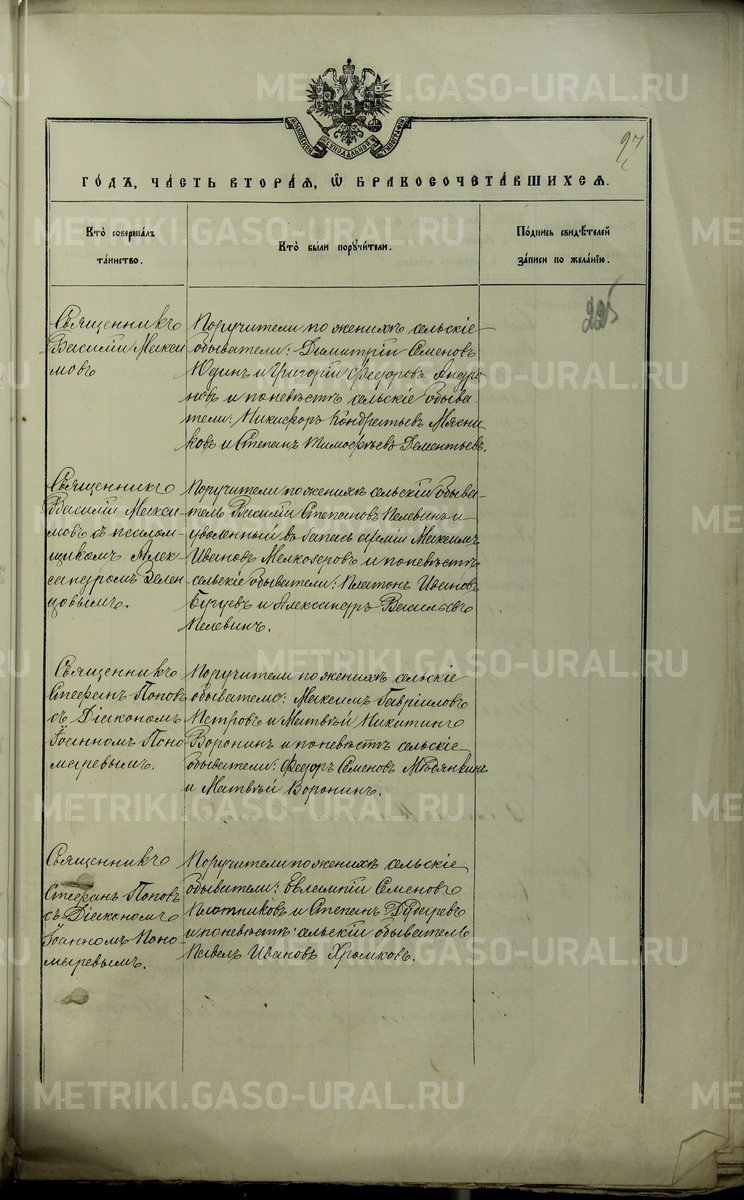 МОСКОВСКОЙ СѴНОДАЛЬНОЙ ТИПОГРАФІИ
97
ГО́ДЪ, ЧА́СТЬ ВТОРА́Я, Ѡ҆ БРАКОСОЧЕТА́ВШИХСЯ.
Кто̀ соверша́лъ
та́инство.
Кто̀ бы́ли поручи́тели.
По́дпись свидѣ́телей
за́писи по жела́нію.
225
Священникъ
Василій Макси
мовъ
Поручители по женихѣ сельскіе
обыватели: Димитрій Семеновъ
Юдинъ и Григорій Ѳедоровъ Андро
новъ и по невѣстѣ сельскіе обыва
тели: Никифоръ Кондратьевъ Мясни
ковъ и Степанъ Тимофѣевъ Дементьевъ.
Священникъ
Василій Макси
мовъ съ псалом-
щикомъ Алек-
сандромъ Зелен
цовымъ.
Поручители по женихѣ сельскій обыва-
тель Василій Степановъ Пелевинъ и
уволенный въ запасъ арміи Максимъ
Ивановъ Мелкозеровъ и по невѣстѣ
сельскіе обыватели: Платонъ Ивановъ
Бучуевъ и Александръ Васильевъ
Пелевинъ.
Священникъ
Стефанъ Поповъ
съ Діакономъ
Іоанномъ Поно
маревымъ.
Поручители по женихѣ сельскіе
обыватели: Максимъ Гавріиловъ
Петровъ и Матвѣй Никитинъ
Воронинъ и по невѣстѣ сельскіе
обыватели: Ѳедоръ Семеновъ
и Матвѣй Воронинъ.
Священникъ
Стефанъ Поповъ
съ Діакономъ
Іоанномъ Поно-
маревымъ.
Поручители по женихѣ сельскіе
обыватели: Евлампій Семеновъ
Плотниковъ и Степанъ
и по невѣстѣ сельскій обыватель
Павелъ Ивановъ Хромковъ.
METRIKI.GASO-URAL.RU